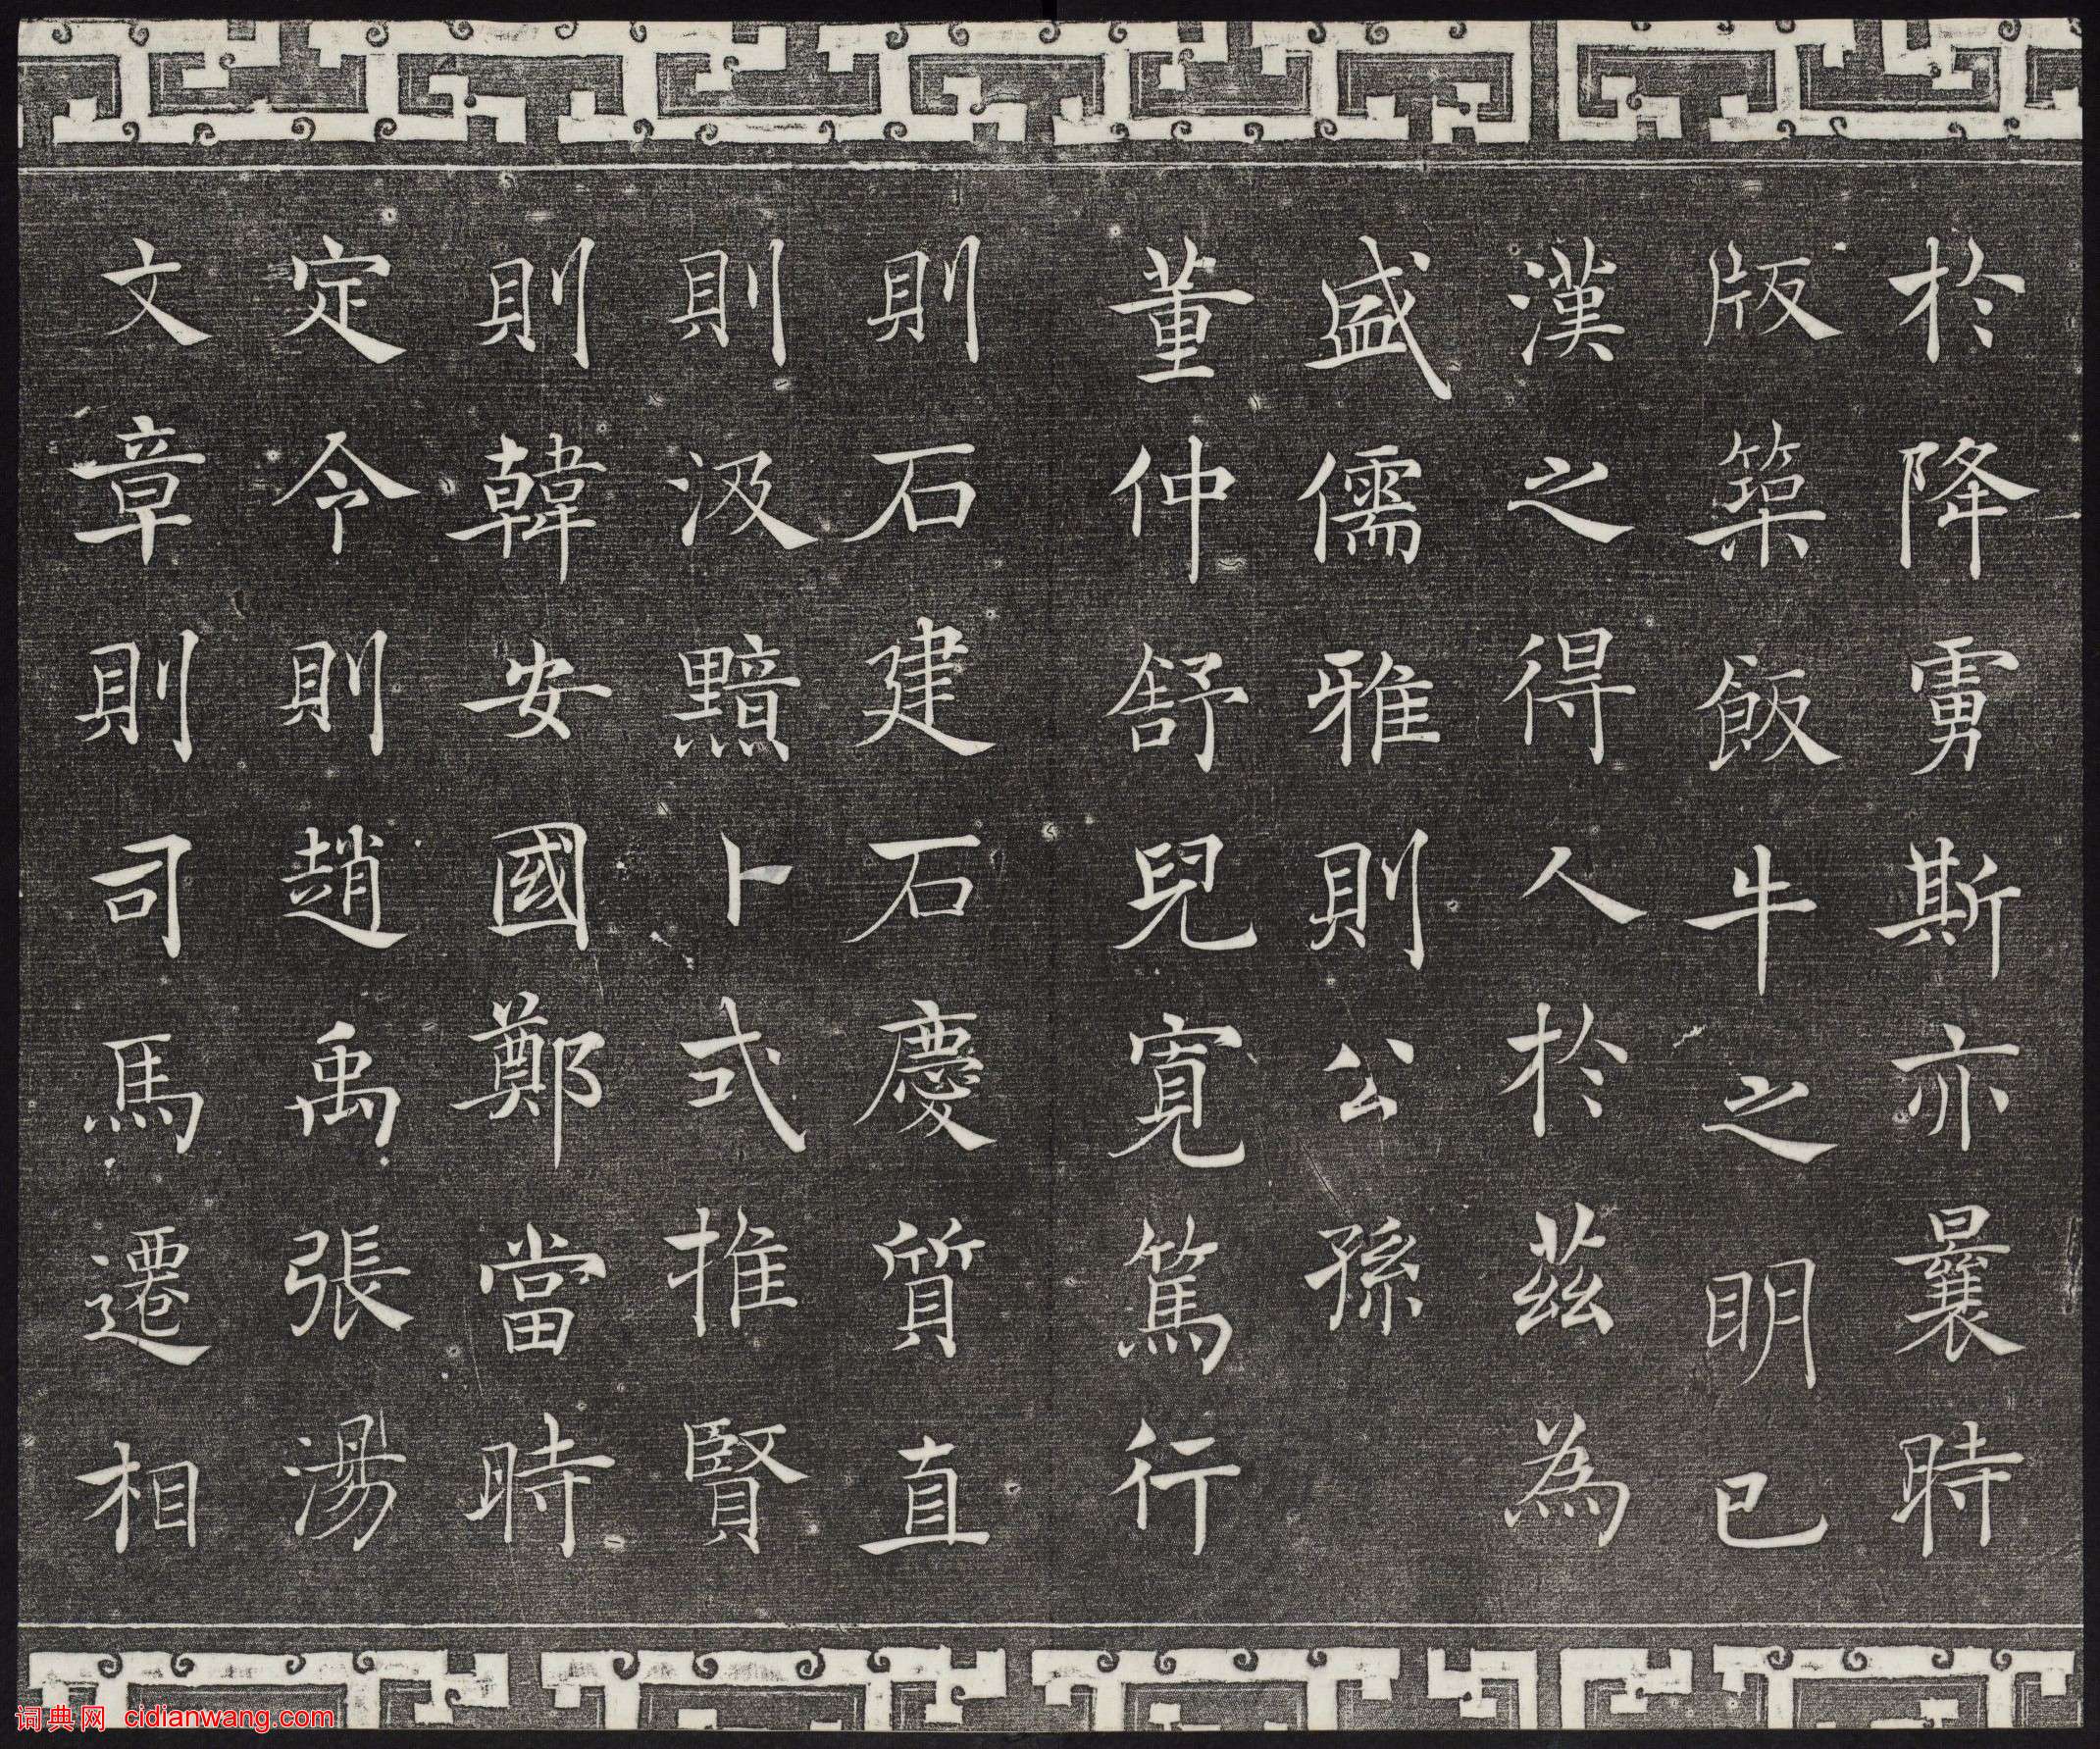 於降虜斯亦曩時
版築飯牛之明已
漢之得人於茲為
盛儒雅則公孫
董仲舒兒寬篤行
則石建石慶質直
則汲黯卜式推賢
則韓安國鄭當時
定令則趙禹張湯
文章則司馬遷相
词典网 cidianwang.com